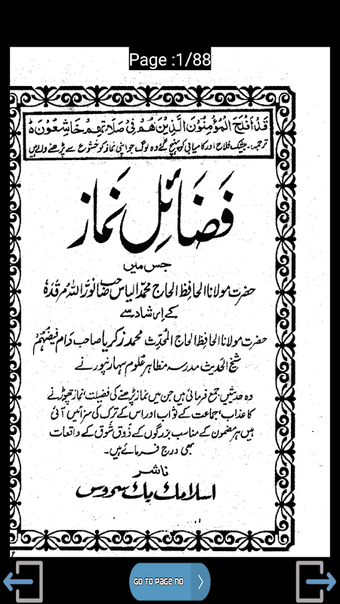 Page :1/88
قَدْ اَفْلَحَ الْمُؤْمِنُوْنَ الَّذِیْنَ هُمْ فِیْ صَلَاتِهِمْ خَاشِعُوْنَ ہ
ترجمہ۔ بیشک فلاح اور کامیابی کو پہنچ گئے وہ لوگ جو اپنی نماز کو خشوع سے پڑھنے والے ہیں
فَضَائِلِ نَماز
جس میں
حضرت مولانا الحافظ الحاج محمد الیاس صاحب نوّر اللہ مرقدہٗ
کے اِرشاد سے
حضرت مولانا الحافظ الحاج المحدّث محمد زکریا صاحب دام فیضُہُم
شیخ الحدیث مدرسہ مظاہر علوم سہارنپور نے
وہ حدیثیں جمع فرمائی ہیں جن میں نماز پڑھنے کی فضیلت نماز چھوڑنے
کا عذاب، جماعت کے ثواب اور اس کے ترک کی سزائیں آئی
ہیں ہر مضمون کے مناسب بزرگوں کے ذوق شوق کے واقعات
بھی درج فرمائے ہیں۔
ناشر
اسلامک بک سروس
GO TO PAGE NO